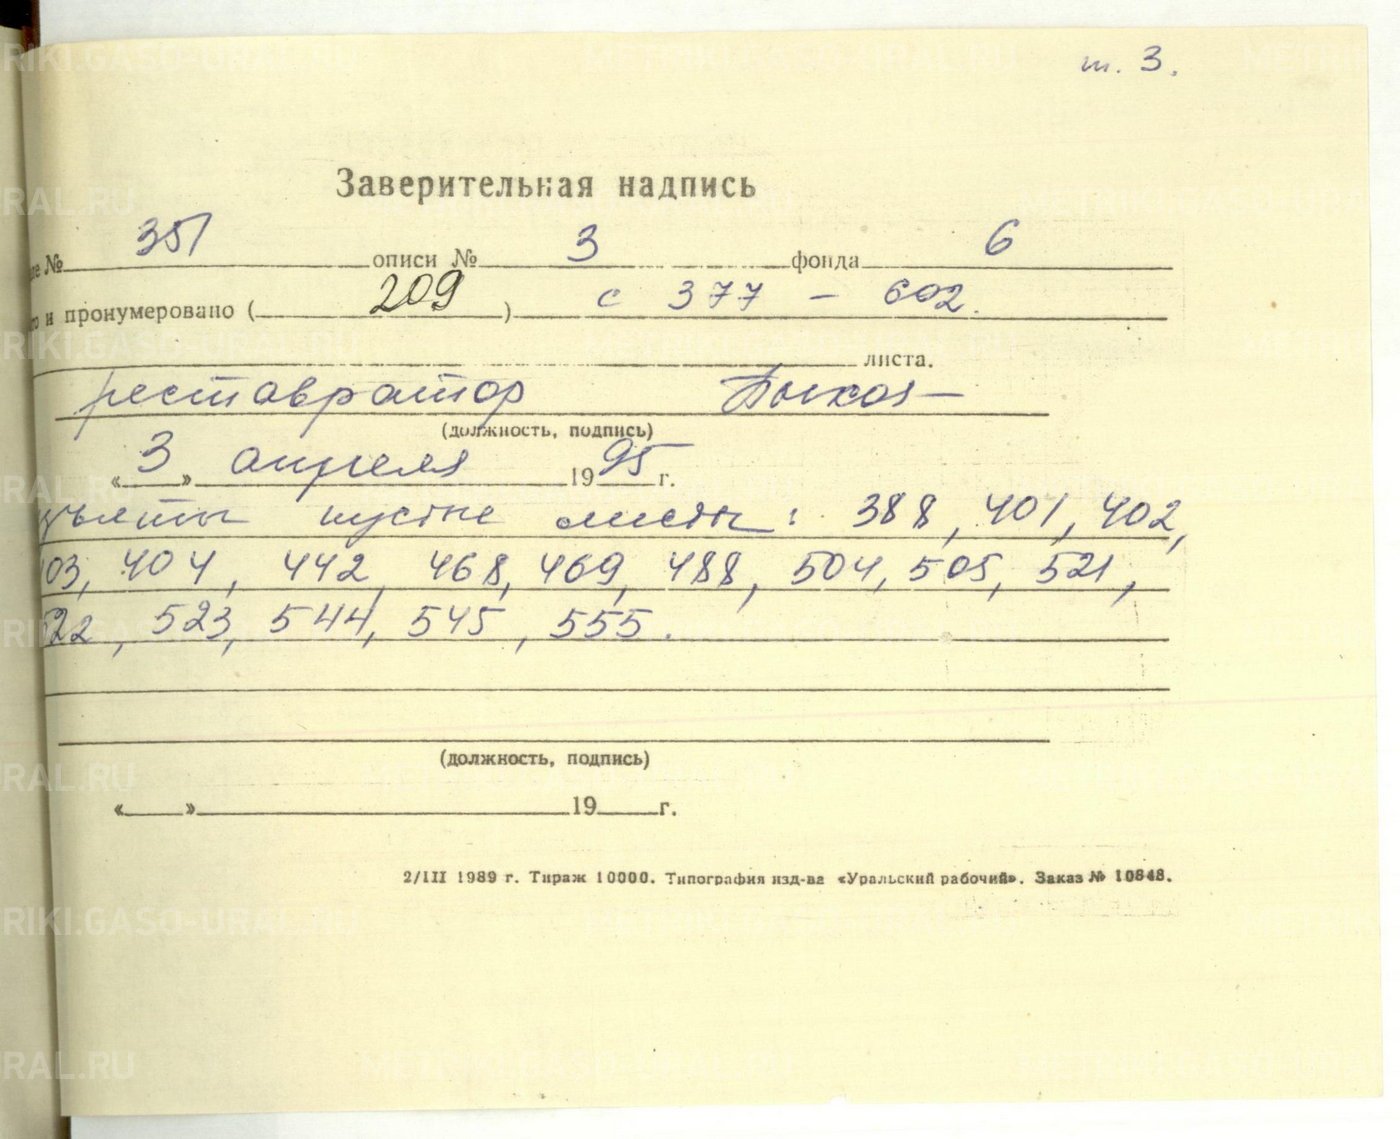 т. 3.
Заверительная надпись
№ 351 описи № 3 фонда 6
и пронумеровано ( 209 ) с 377 – 602.
листа.
реставратор
(должность, подпись)
« 3 » апреля 19 95 г.
зъяты пустые листы : 388, 401, 402,
03, 404, 442, 468, 469, 488, 504, 505, 521,
522, 523, 544, 545, 555.
(должность, подпись)
« » 19 г.
2/III 1989 г. Тираж 10000. Типография изд-ва «Уральский рабочий». Заказ № 10848.